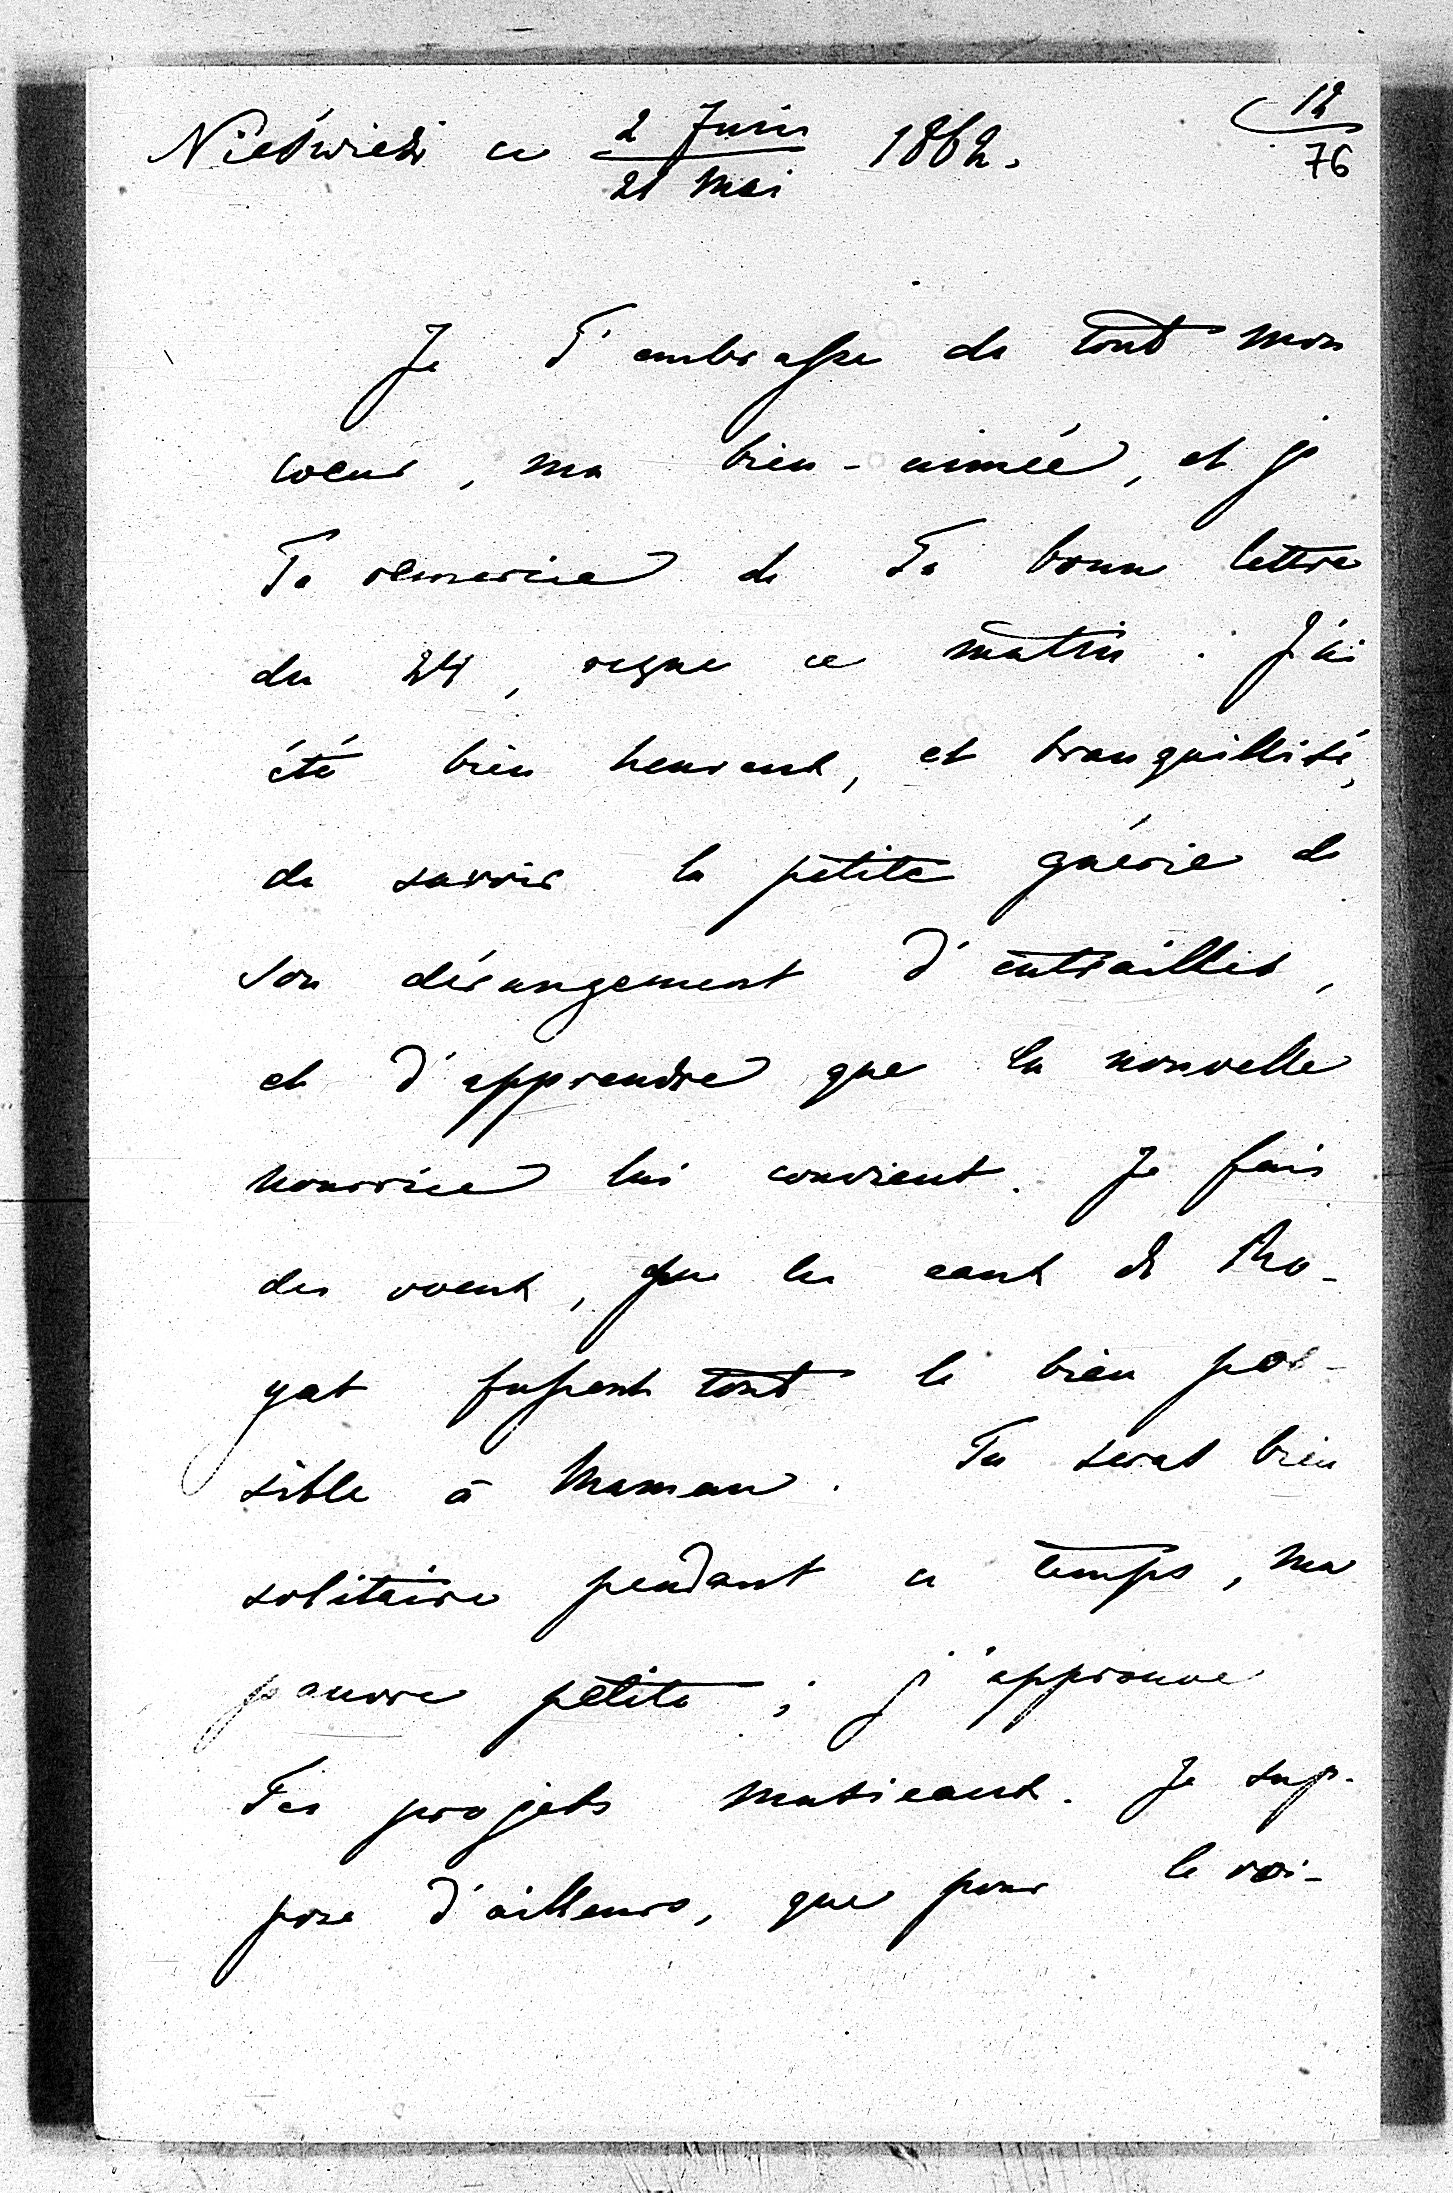 Nieśwież ce 2 Juin / 21 Mai 1862.
12/76
Je T'embrasse de tout mon
coeur, ma bien-aimée, et je
Te remercie de Ta bonne lettre
du 24, reçue ce matin. J'ai
été bien heureux, et tranquillisé,
de savoir la petite guérie de
son dérangement d'entrailles,
et d'apprendre que la nouvelle
nourrice lui convient. Je fais
des voeux, que les eaux de Ro-
yat fassent tout le bien pos-
sible à Maman. Tu seras bien
solitaire pendant ce temps, ma
pauvre petite; j'approuve
Tes projets musicaux. Je sup-
pose d'ailleurs, que pour le voi-